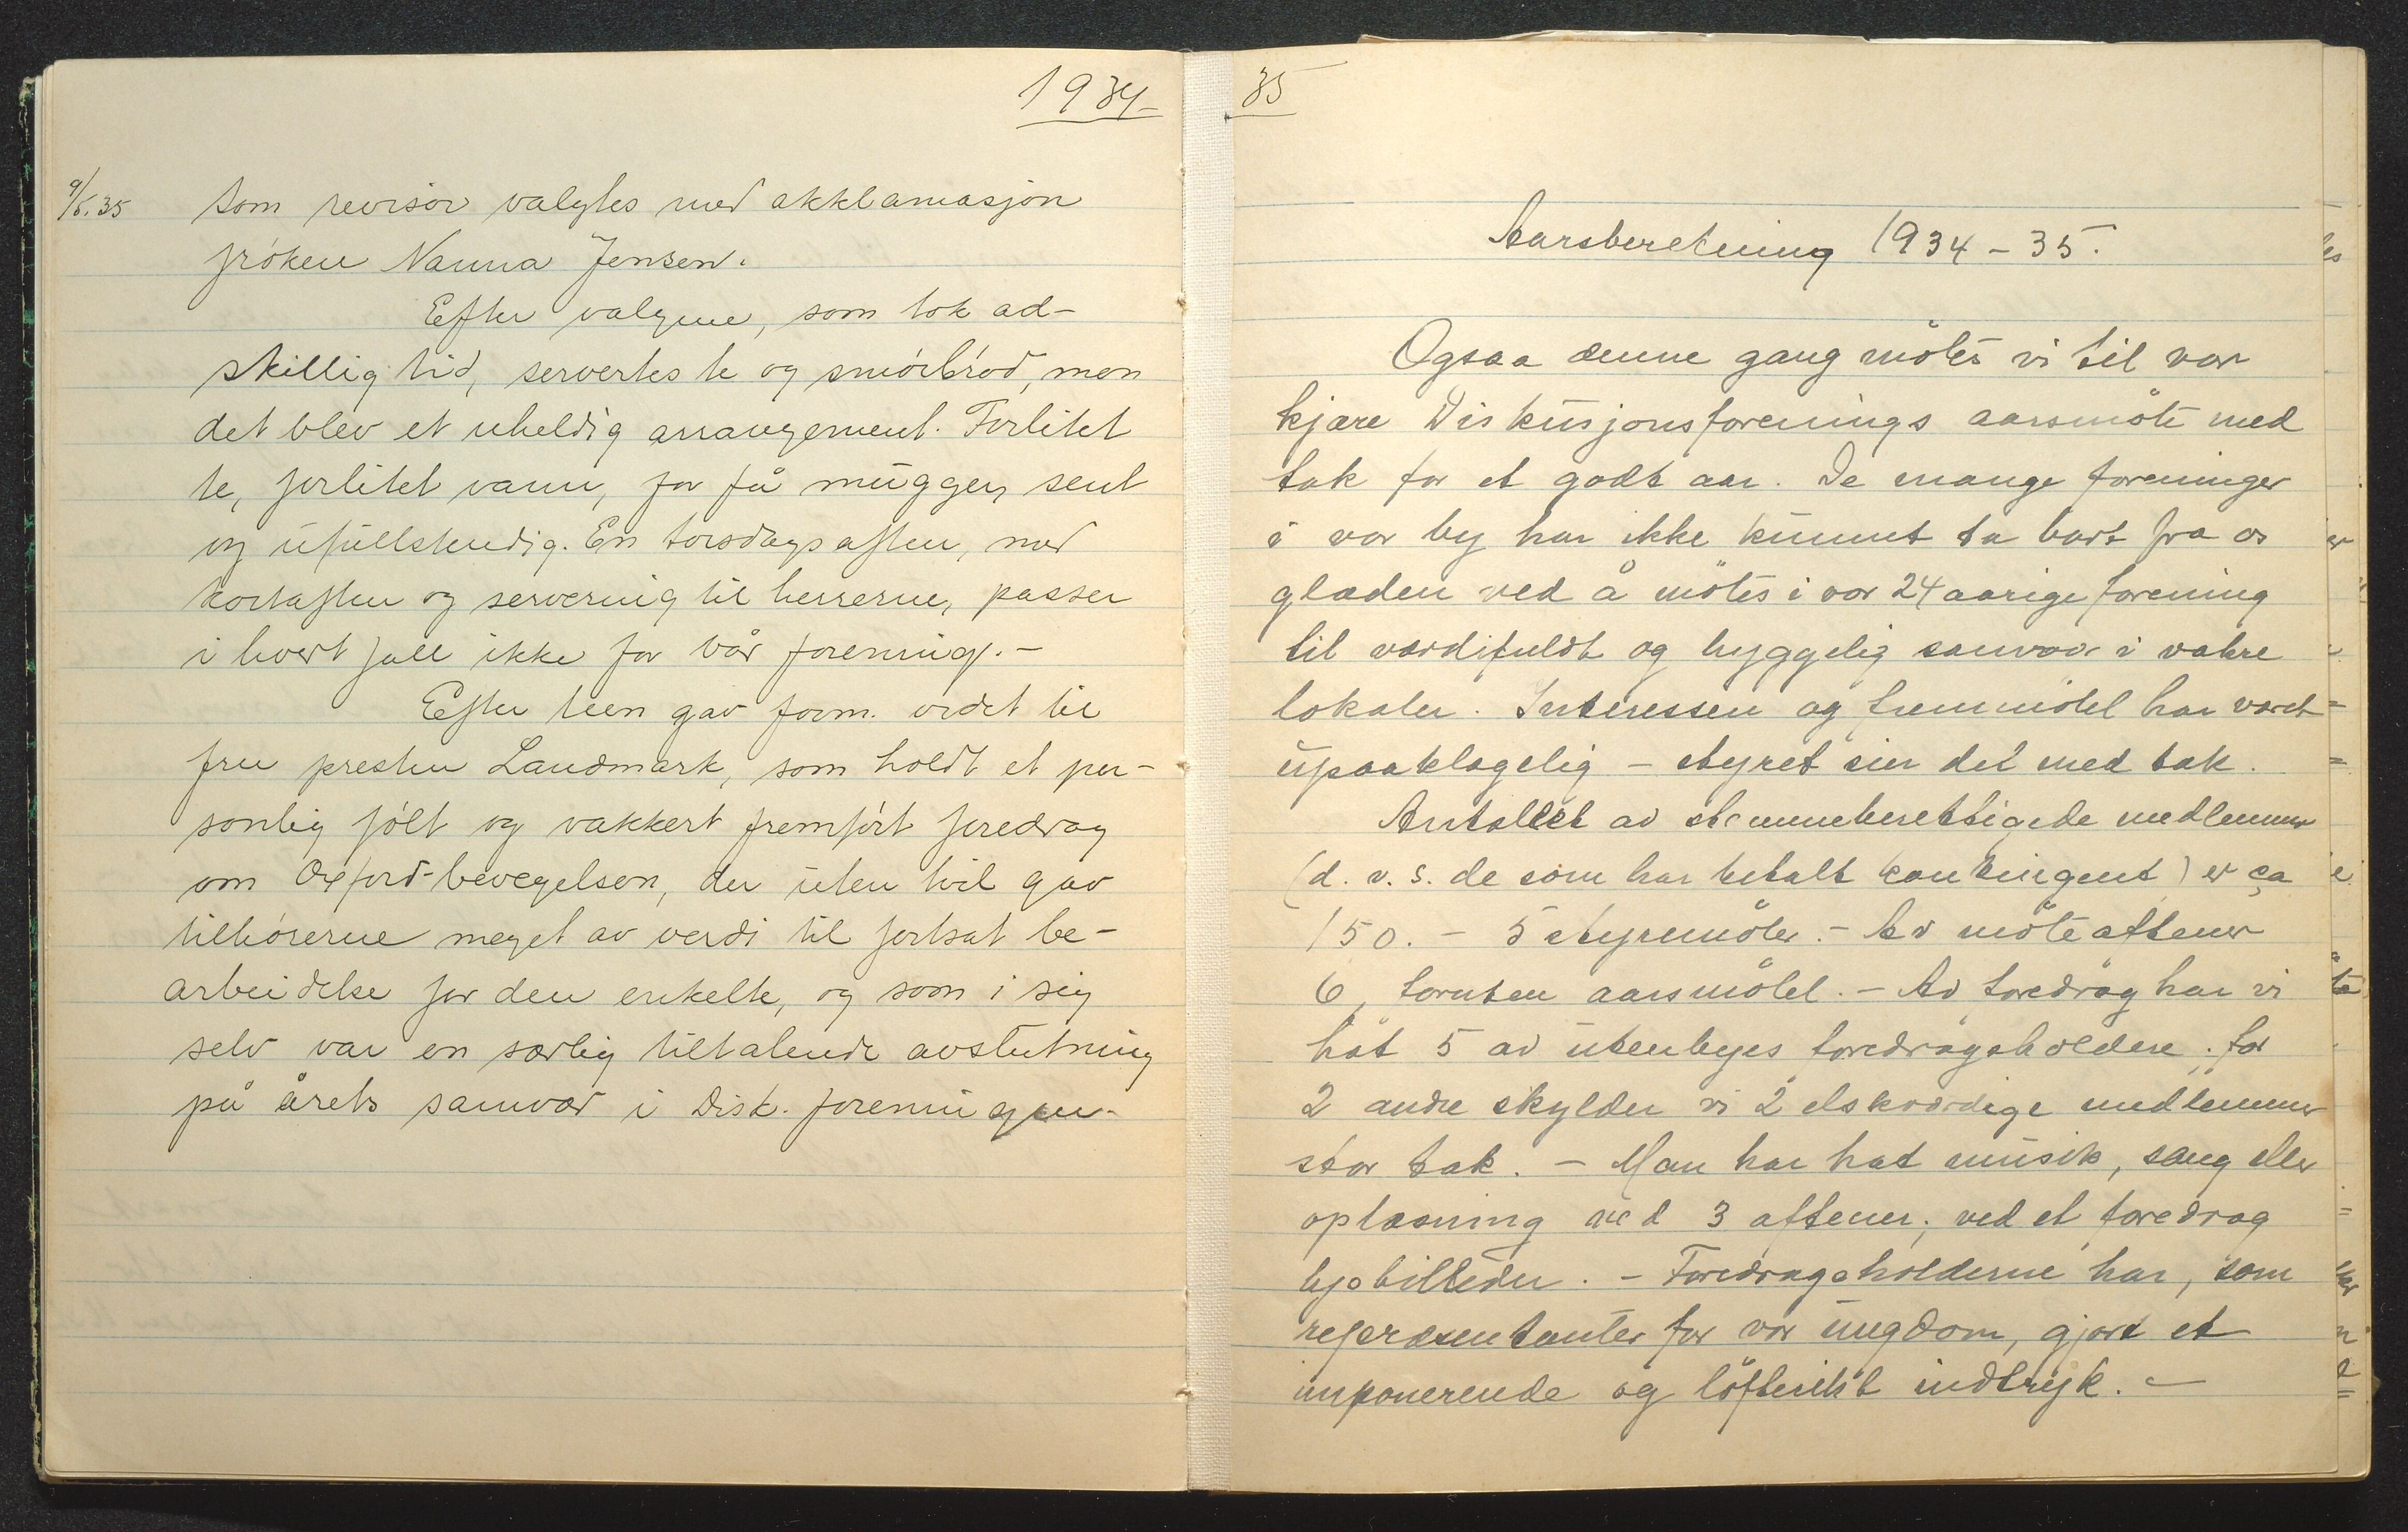 1934-
9/5.35 Som revisor valgtes med akklamasjon
frøken Nanna Jensen.
Efter valgene, som tok ad-
skillig tid, servertes te og smørbrød, men
det blev et uheldig arrangement. Forlitet
te, forlitet vann, for få mugger, sent
og ufullstendig. En torsdagsaften, med
kortaften og servering til herrerne, passer
i hvert fall ikke for vår forening.-
Efter teen gav form. ordet til
fru presten Landmark, som holdt et per-
sonlig følt og vakkert fremført foredrag
om Oxford-bevegelsen, der uten tvil gav
tilhørerne meget av verdi til fortsat be-
arbeidelse for den enkelte, og som i sig
selv var en særlig tiltalende avslutning
på årets samvær i Disk. foreningen.
35
Aarsberetning 1934-35.
Ogsaa denne gang møtes vi til vor
kjære Diskusjonsforenings aarsmøte med
tak for et godt aar. De mange foreninger
i vor by har ikke kunnet ta bort fra os
glæden ved å møtes i vor 24 aarige forening
til værdifuldt og hyggelig samvær i vakre
lokaler. Interessen og fremmøtet har været
upaaklagelig - styret sier det med tak.
Antallet av stemmeberettigede medlemmer
(d.v.s. de som har betalt kontingent) er ca
150. - 5 styremøter. - Av møteaftener
6, foruten aarsmøtet. - Av foredrag har vi
hat 5 av utenbyes foredragsholdere. for
2 andre skylder vi 2 elskværdige medlemmer
stor tak. - Man har hat musik, sang eller
oplæsning ved 3 aftener; ved et foredrag
lysbilleder. - Foredragsholderne har, som
repræsentanter for vor ungdom, gjort et
imponerende og løfterikt indtryk. -